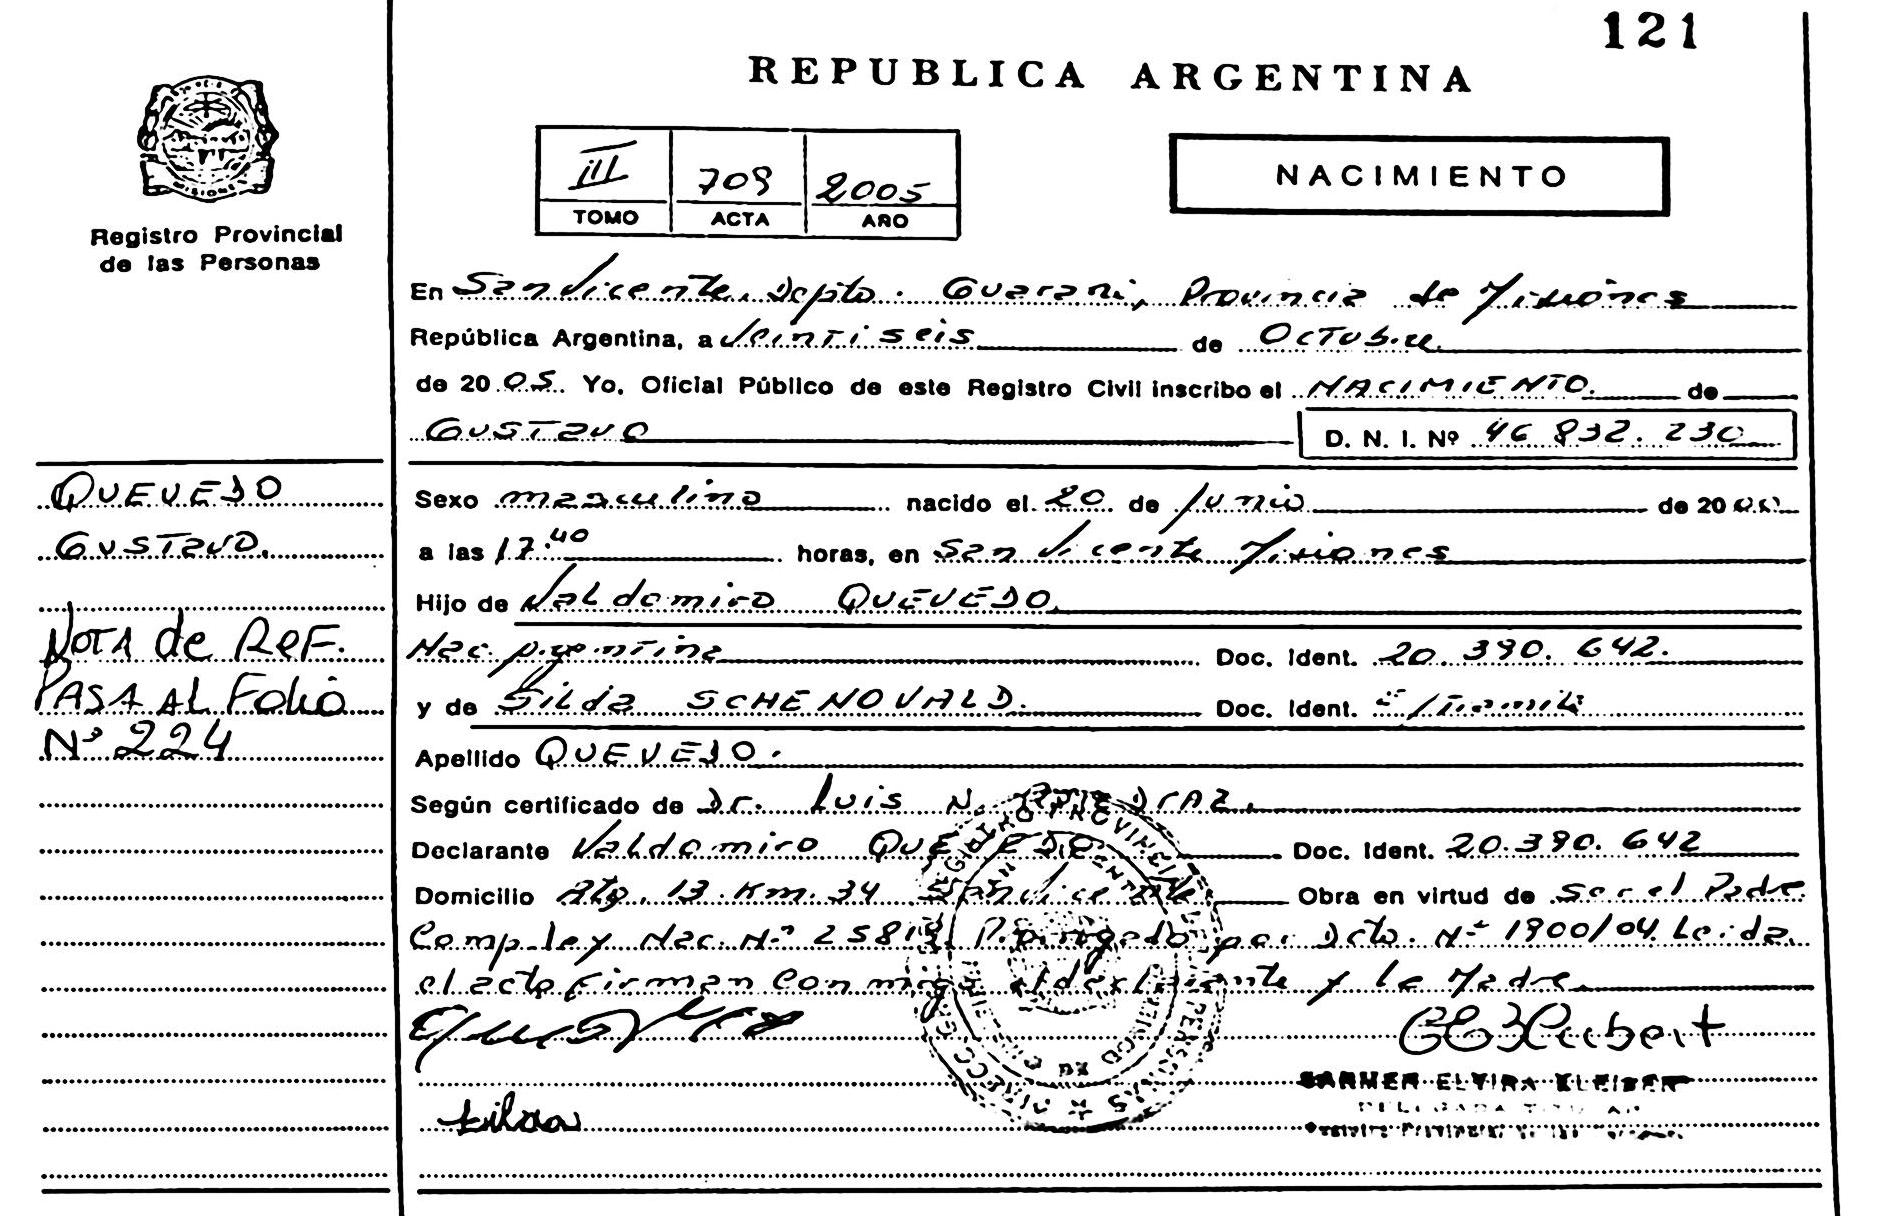 121
REPUBLICA ARGENTINA
Registro Provincial
de las Personas
III 709 2005
TOMO ACTA AÑO
NACIMIENTO
En San Vicente, Depto. Guarani, Provincia de Misiones
República Argentina, a Veintiseis de Octubre
de 2005. Yo, Oficial Público de este Registro Civil inscribo el NACIMIENTO. de
GUSTAVO D. N. I. Nº 46 832. 230
QUEVEDO
GUSTAVO.
NOTA de REF.
PASA AL FOLIO
Nº 224
Sexo masculino nacido el 20 de Junio de 2000
a las 17:40 horas, en San Vicente Misiones
Hijo de Valdomiro QUEVEDO.
Nac. Argentina Doc. Ident. 20 390. 642.
y de Silda SCHENOVALD. Doc. Ident. E/Tramite
Apellido QUEVEDO.
Según certificado de Dr. Luis N. DIAZ.
Declarante Valdomiro QUEVEDO Doc. Ident. 20.390. 642
Domicilio Rta. 13 Km. 34 San Vicente Obra en virtud de Ser el Padre
Comp. ley Nac. Nº 25819 Prorrogado por Dcto. Nº 1900/04. Leida
el acto firman conmigo el declarante y la Madre.
REGISTRO PROVINCIAL DE LAS PERSONAS
CARMEN ELVIRA KLEIBER
DELEGADA TITULAR
Registro Provincial de las Personas